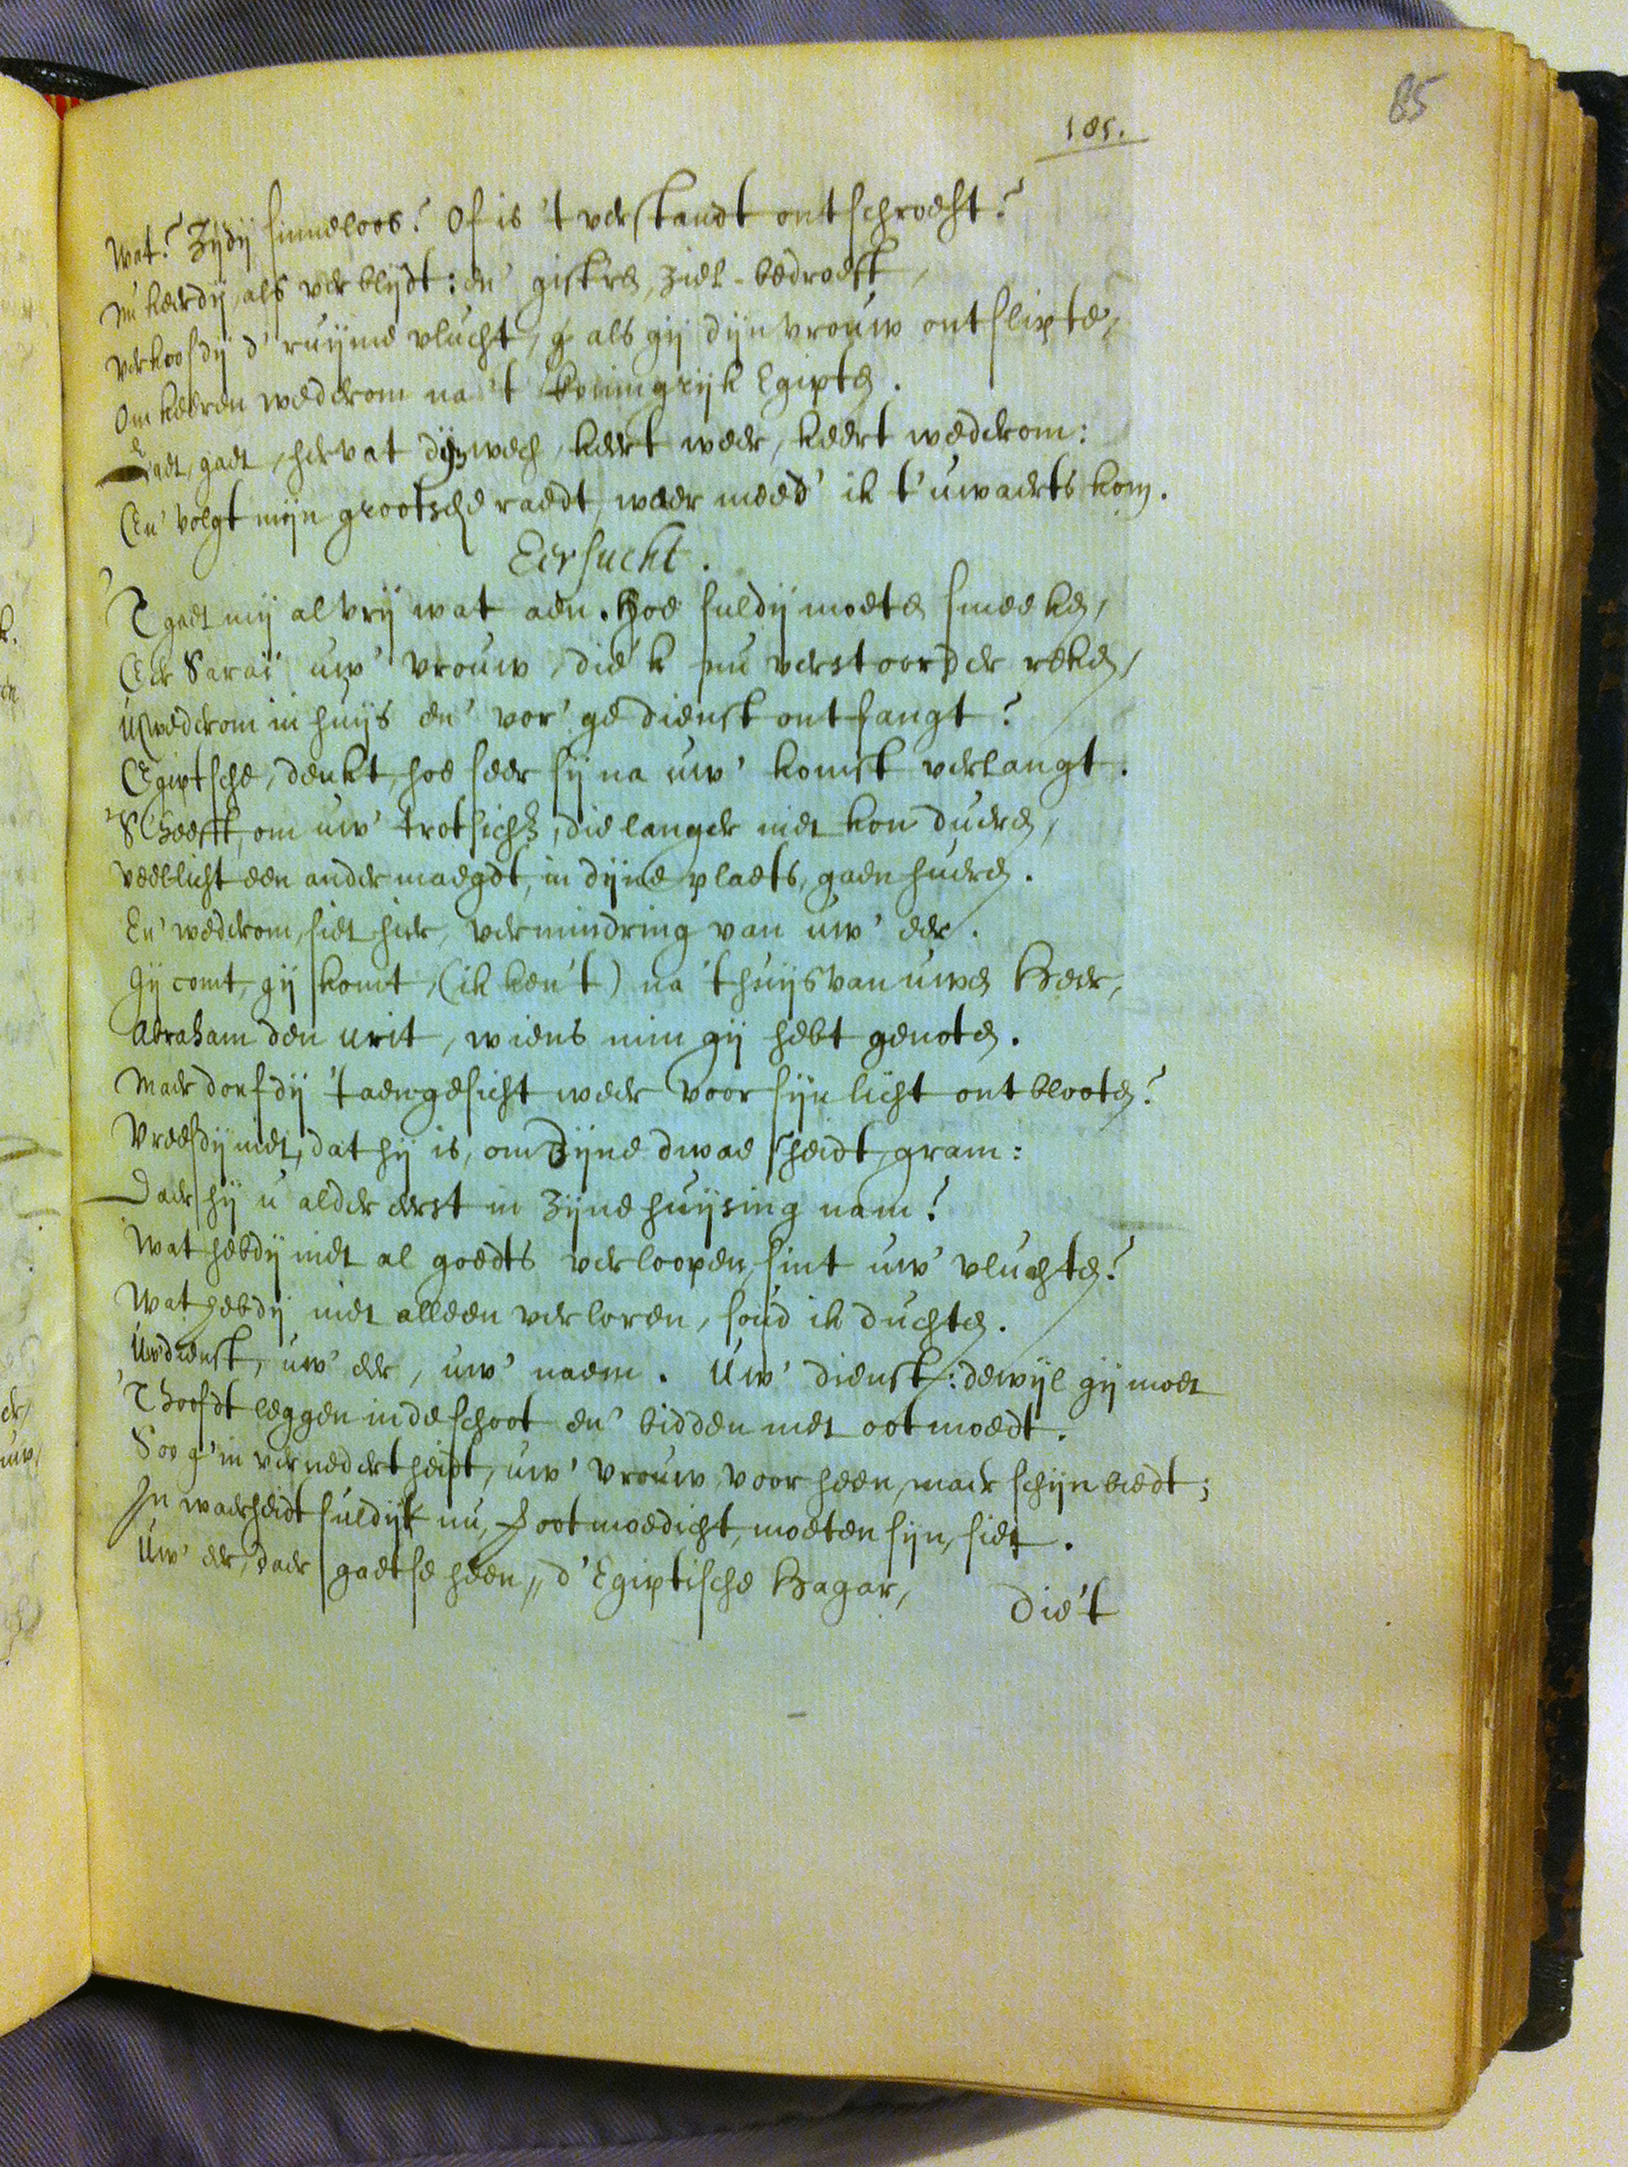 85
185.
Wat? Zijdij sinneloos? Of is 't verstandt ontschroeft?
Nu keerdij, als verblijdt: en' gistren, ziel-bedroeft,
Verkoosdij d' ruijme vlucht, als gij dijn vrouw ontslipte,
Om keeren wederom na 't koningrijk Egipten.
Gaet, gaet, hervat dijn wech, keert weer, keert wederom:
En' volgt mijn grootsche raedt, waer meed' ik t'uwaerts kom.
Eersucht.
'T gaet mij al vrij wat aen. Hoe suldij moeten smeeken,
Eer Saraï uw' vrouw, die 'k nu verstoorder reken,
U wederom in huijs en' vor'ge dienst ontfangt?
Egiptsche, denkt, hoe seer sij na uw' komst verlangt.
'S' heeft, om uw' trotsicheyt, die langer niet kon dueren,
Veellicht een ander maegdt, in dijne plaets, gaen hueren.
En' wederom, siet hier, vermindring van uw' eer.
Gij comt, gij komt, (ik ken 't) na 't huijs van uwen Heer,
Abraham den urit, wiens min gij hebt genoten.
Maer dorfdij 't aengesicht weer voor sijn licht ontblooten?
Vreesdij niet, dat hij is, om dijne dwaesheidt, gram:
Daer hij u alder eerst in zijne huijsing nam?
Wat hebdij niet al goedts verloopen, sint uw' vluchten?
Wat hebdij niet alleen verloren, soud ik duchten.
Uw' dienst, uw' eer, uw' naem. Uw' dienst: dewijl gij moet
'T hooft leggen in de schoot en' bidden met ootmoedt.
Soo g' in vernedertheidt, uw' vrouw, voor heen, maer schijn biedt;
In waerheidt suldijt nu, ootmoedicht, moeten sijn, siet.
Uw' eer, daer gaetse heen, d' Egiptische Hagar,
Die 't